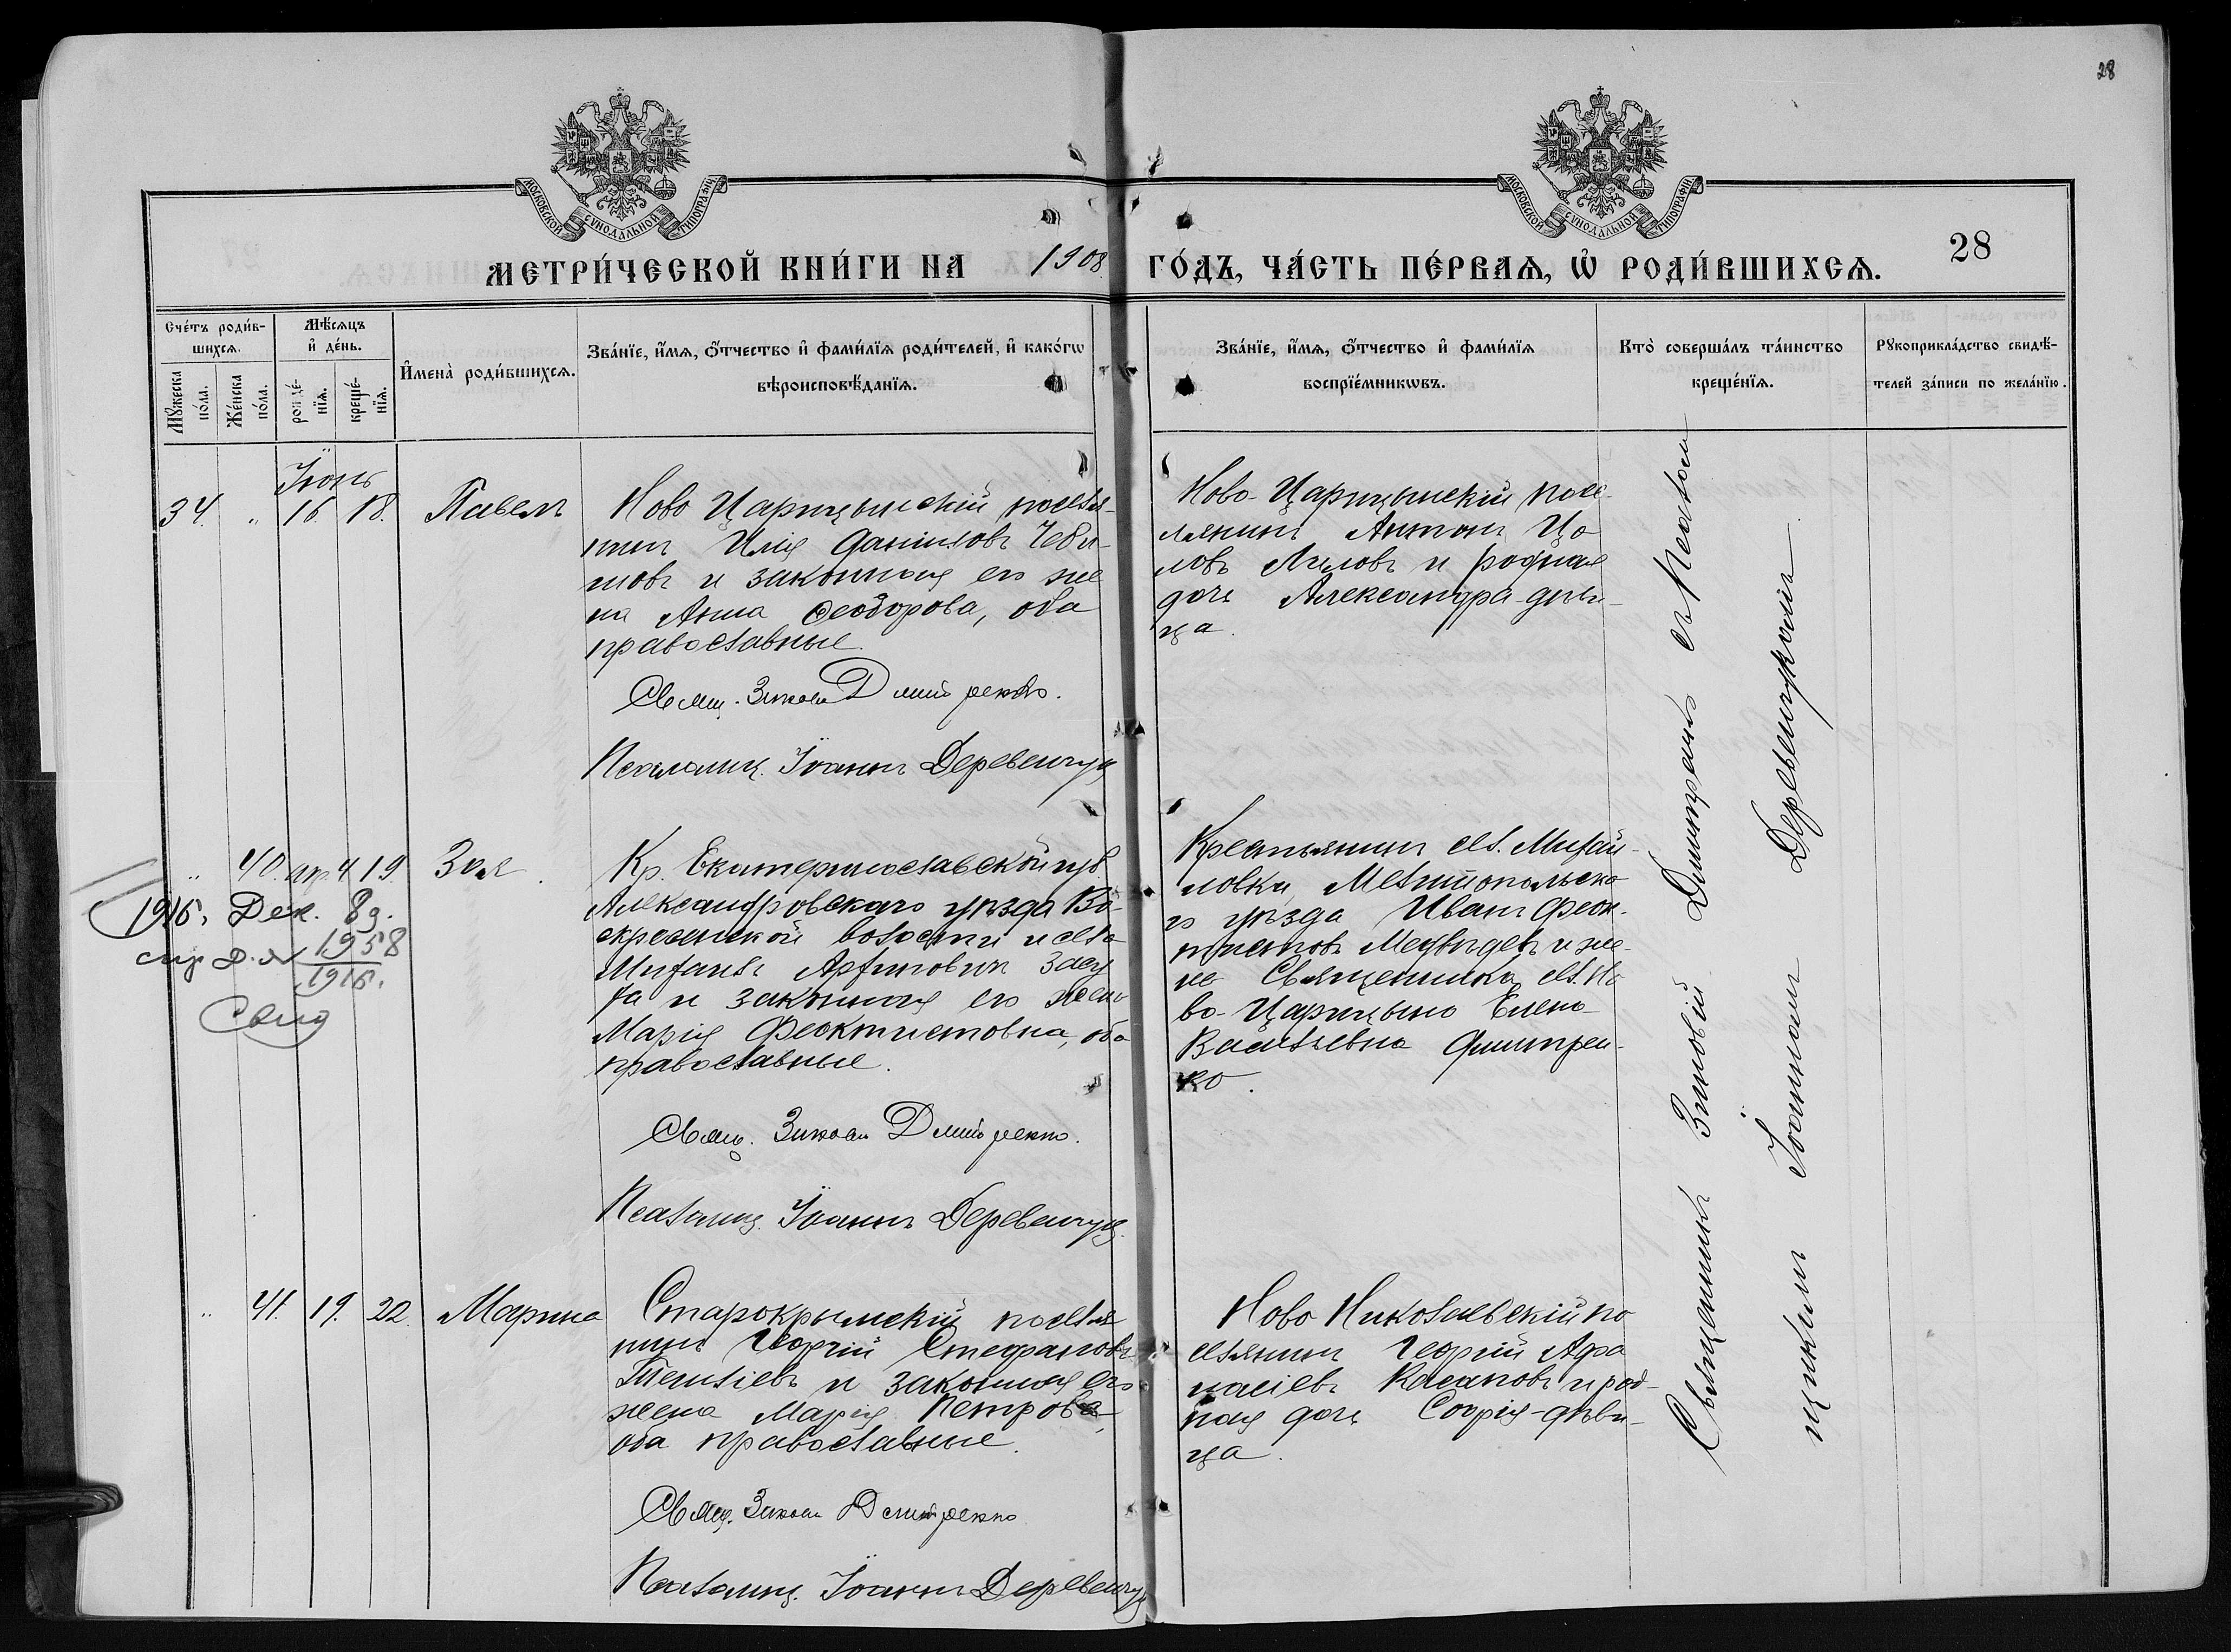 28
МОСКОВСКОЙ СѴНОДАЛЬНОЙ ТИПОГРАФІИ
МОСКОВСКОЙ СѴНОДАЛЬНОЙ ТИПОГРАФІИ
МЕТРИ́ЧЕСКОЙ КНИ́ГИ НА 1908 ГО́ДЪ, ЧА́СТЬ ПЕ́РВАѦ, Ѽ РОДИ́ВШИХСѦ. 28
Сче́тъ роди́в-
шихсѧ.
Мꙋжеска по́ла.
Же́нска по́ла.
Мѣ́сѧцъ
и҆ де́нь.
рожде́-нїѧ.
креще́-нїѧ.
И҆мена̀ роди́вшихсѧ.
Зва́нїе, и҆́мѧ, ѻ҆́тчество и҆ фами́лїѧ роди́телей, и҆ како́гѡ
вѣроисповѣ́данїѧ.
Зва́нїе, и҆́мѧ, ѻ҆́тчество и҆ фами́лїѧ
воспрїе́мникѡвъ.
Кто̀ соверша́лъ та́инство
креще́нїѧ.
Рꙋкоприкла́дство свидѣ́-
телей за́писи по жела́нїю.
Іюнь
34. " 16. 18. Павелъ
Ново Царицынскій поселя-
нинъ Илія Даніиловъ Чеби-
новъ и законная его же
на Анна Феодорова, оба
православные.
Свящ. Зиновій Дмитренко.
Псаломщ. Іоаннъ Деревенчук
Ново-Царицынскій посе-
лянинъ Антонъ Цо
ловъ и родная
дочь Александра-дѣви-
ца.
" 40. 4 19. Зоя.
1916. Дек. 8 д.
1958
1916.
Свид
Кр. Екатеринославской губ.
Александровскаго уѣзда Во-
скресенской волости и села
Михаилъ Архиповичъ Засу
ха и законная его жена
Марія Феоктистовна, оба
православные.
Свящ. Зиновій Дмитренко.
Псаломщ. Іоаннъ Деревенчук.
Крестьянинъ сел. Михай-
ловки, Мелитопольска
го уѣзда Иванъ Феок-
тистовъ Медвѣдевъ и же-
на Священника сел. Но
во-Царицыно Елена
Васильевна Димитрен-
ко.
" 41. 19. 22. Марина
Старокрымскій поселя
нинъ Георгій Стефановъ
и законная его
жена Марія Петрова,
оба православные.
Свящ. Зиновій Дмитренко
Псаломщ. Іоаннъ Деревенчук
Ново Николаевскій по
селянинъ Георгій Афа
насіевъ Касаповъ и род-
ная дочь Софія-дѣви-
ца.
Священникъ Зиновій Димитренко съ Псалом
щикомъ Іоанномъ Деревенчукомъ.